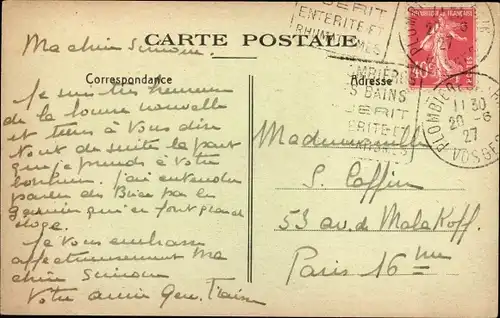 GUERIT
ENTERITE ET
RHUMATISMES
PLOMBIERES
20-6
27
REPUBLIQUE FRANÇAISE
CARTE POSTALE
Correspondance
Adresse
PLOMBIERES
S BAINS
GUERIT
ENTERITE ET
PLOMBIERES
11 30
20-6
27
VOSGES
Ma chère Simone,
Je suis très heureuse
de la bonne nouvelle
et tiens à Vous dire
tout de suite la part
que je prends à Votre
bonheur. J'ai entendu
parler des par la
qui en font grand
éloge.
Je Vous embrasse
affectueusement Ma
chère Simone
Votre amie Gen.
Mademoiselle
S. Caffin
53 av. de Malakoff.
Paris 16me